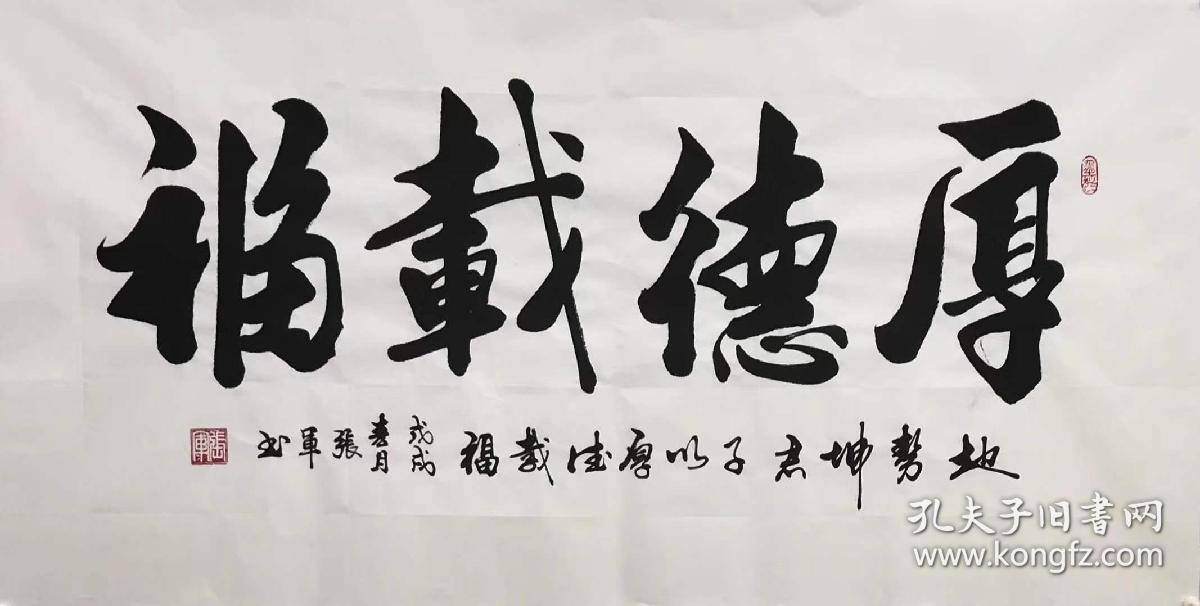 厚德載福
地勢坤君子以厚德載福
戊戌
春月
張軍书
張軍
孔夫子旧書网
www.kongfz.com